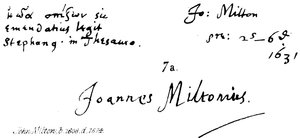 sic
emendatius legit
Stephanq. in Thesauro.
Jo: Milton
pre: 2s–6d
1631
7a.
Joannes Miltonius.
John Milton, b. 1608, d. 1674.